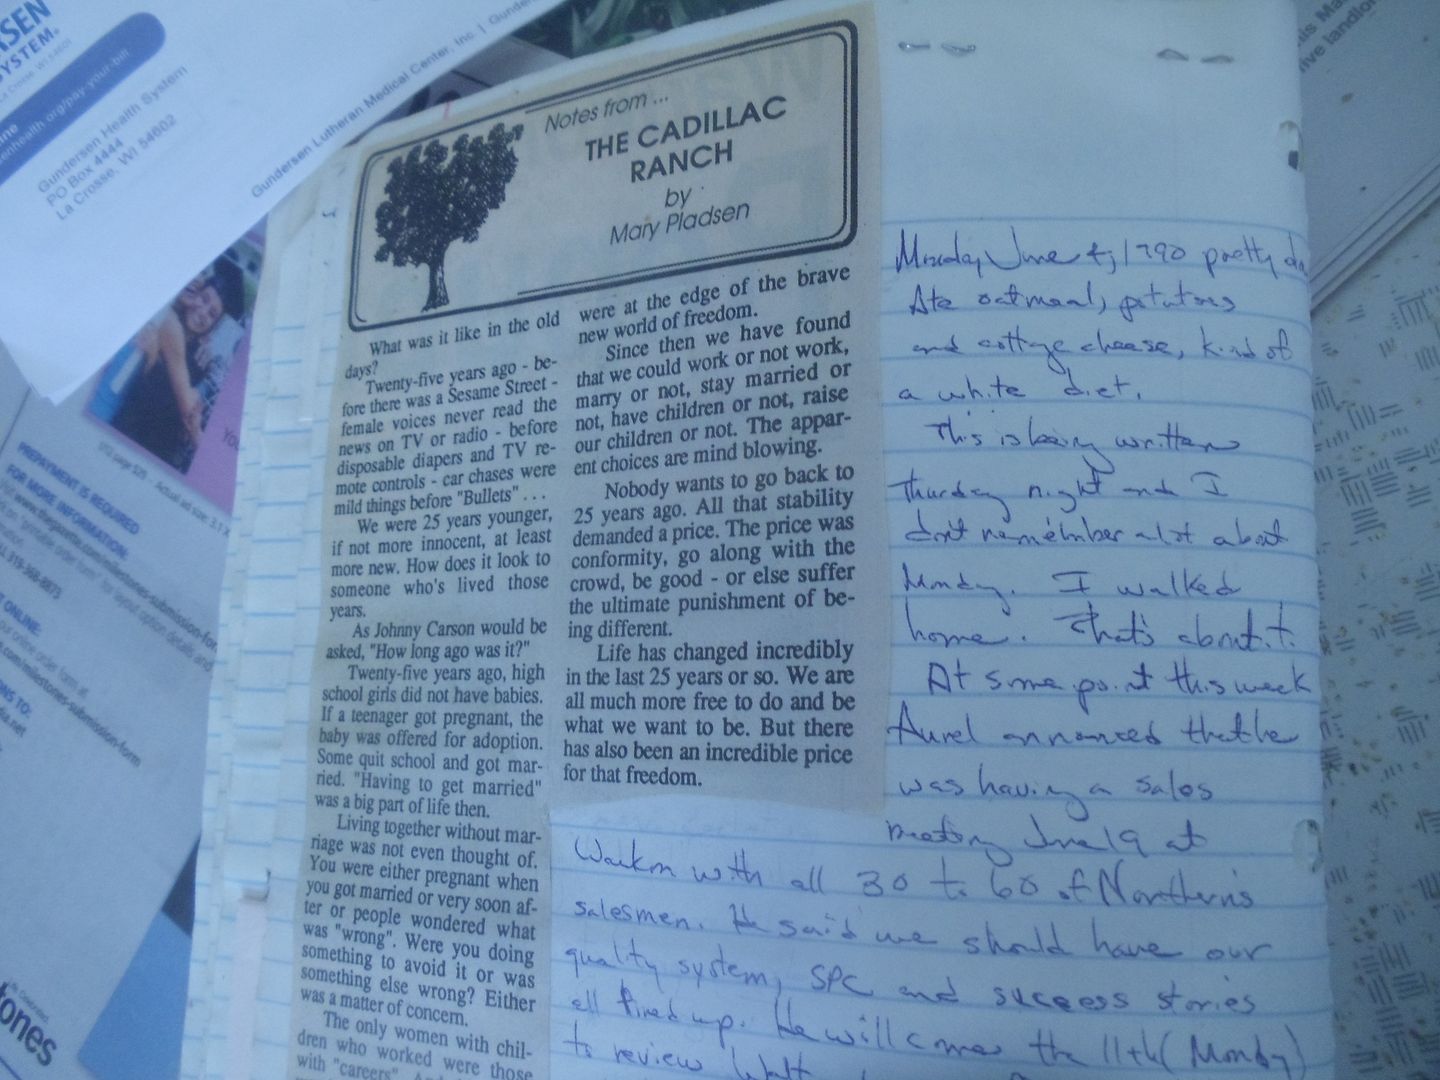 SEN
SYSTEM®
La Crosse WI 54601
ne
enhealth.org/pay-your-bill
Gundersen Health System
PO Box 4444
La Crosse, WI 54602
Gundersen Lutheran Medical Center, Inc. |
PREPAYMENT IS REQUIRED
FOR MORE INFORMATION:
ONLINE:
Notes from ...
THE CADILLAC
RANCH
by
Mary Pladsen
What was it like in the old
days?
Twenty-five years ago - be-
fore there was a Sesame Street -
female voices never read the
news on TV or radio - before
disposable diapers and TV re-
mote controls - car chases were
mild things before "Bullets" . . .
We were 25 years younger,
if not more innocent, at least
more new. How does it look to
someone who's lived those
years.
As Johnny Carson would be
asked, "How long ago was it?"
Twenty-five years ago, high
school girls did not have babies.
If a teenager got pregnant, the
baby was offered for adoption.
Some quit school and got mar-
ried. "Having to get married"
was a big part of life then.
Living together without mar-
riage was not even thought of.
You were either pregnant when
you got married or very soon af-
ter or people wondered what
was "wrong". Were you doing
something to avoid it or was
something else wrong? Either
was a matter of concern.
The only women with chil-
dren who worked were those
with "careers".
were at the edge of the brave
new world of freedom.
Since then we have found
that we could work or not work,
marry or not, stay married or
not, have children or not, raise
our children or not. The appar-
ent choices are mind blowing.
Nobody wants to go back to
25 years ago. All that stability
demanded a price. The price was
conformity, go along with the
crowd, be good - or else suffer
the ultimate punishment of be-
ing different.
Life has changed incredibly
in the last 25 years or so. We are
all much more free to do and be
what we want to be. But there
has also been an incredible price
for that freedom.
Monday June 4, 1990 pretty day
Ate oatmeal, potatoes
and cottage cheese, kind of
a white diet.
This is being written
Thursday night and I
don't remember a lot about
Monday. I walked
home. That's about it.
At some point this week
Aurel announced that he
was having a sales
meeting June 19 at
Waukon with all 30 to 60 of Northern's
salesmen. He said we should have our
quality system, SPC and success stories
all fired up. He will come the 11th (Monday)
to review